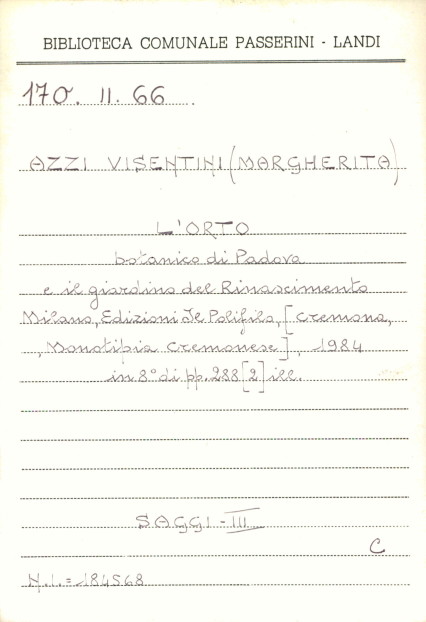 BIBLIOTECA COMUNALE PASSERINI - LANDI
170. II. 66
AZZI VISENTINI (MARGHERITA)
L'ORTO
botanico di Padova
e il giardino del Rinascimento
Milano, Edizioni Il Polifilo, [Cremona,
, Monotipia Cremonese], 1984
in 8° di pp. 288 [2] ill.
SAGGI - III
C
N.I. = 184568